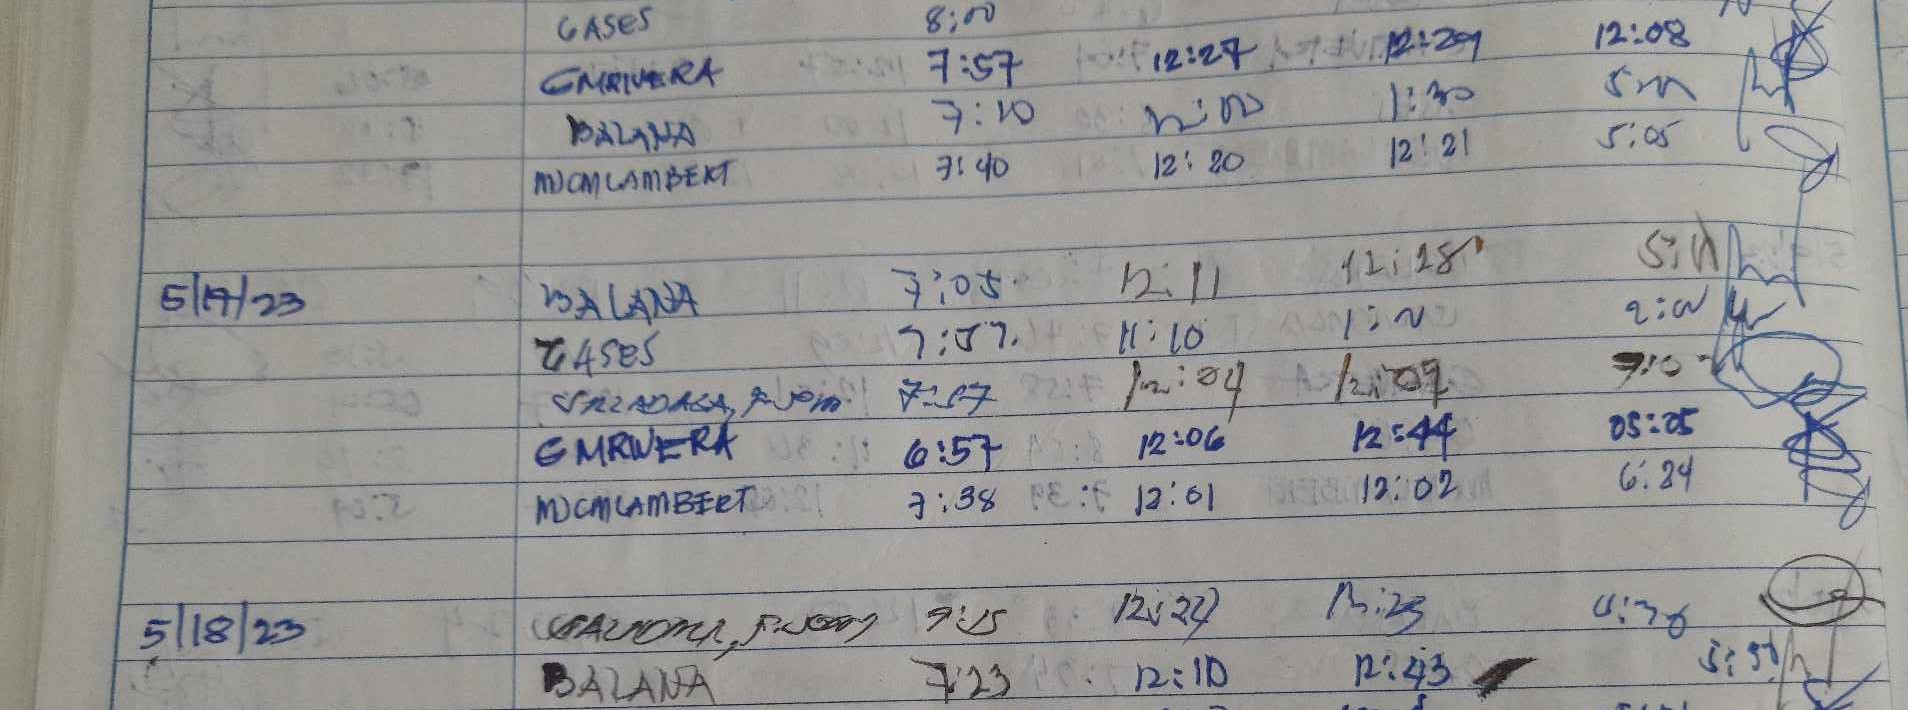 GASES 8:00
GMRIVERA 7:57 12:27 12:29 12:08
BALANA 7:10 12:00 1:30 5:00
MJCMLAMBERT 7:40 12:20 12:21 5:05
5/17/23 BALANA 7:05 12:11 12:28 5:11
GASES 7:57 11:10 1:00 2:00
7:57 12:04 12:07
GMRIVERA 6:57 12:06 12:44 05:05
MJCMLAMBERT 7:38 12:01 12:02 6:24
5/18/23 12:22
BALANA 7:23 12:10 12:43